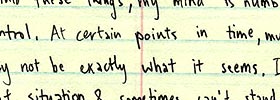 these things, my mind is numb
ntrol. At certain points in time, my
y not be exactly what it seems. I
situation & sometimes can't stand